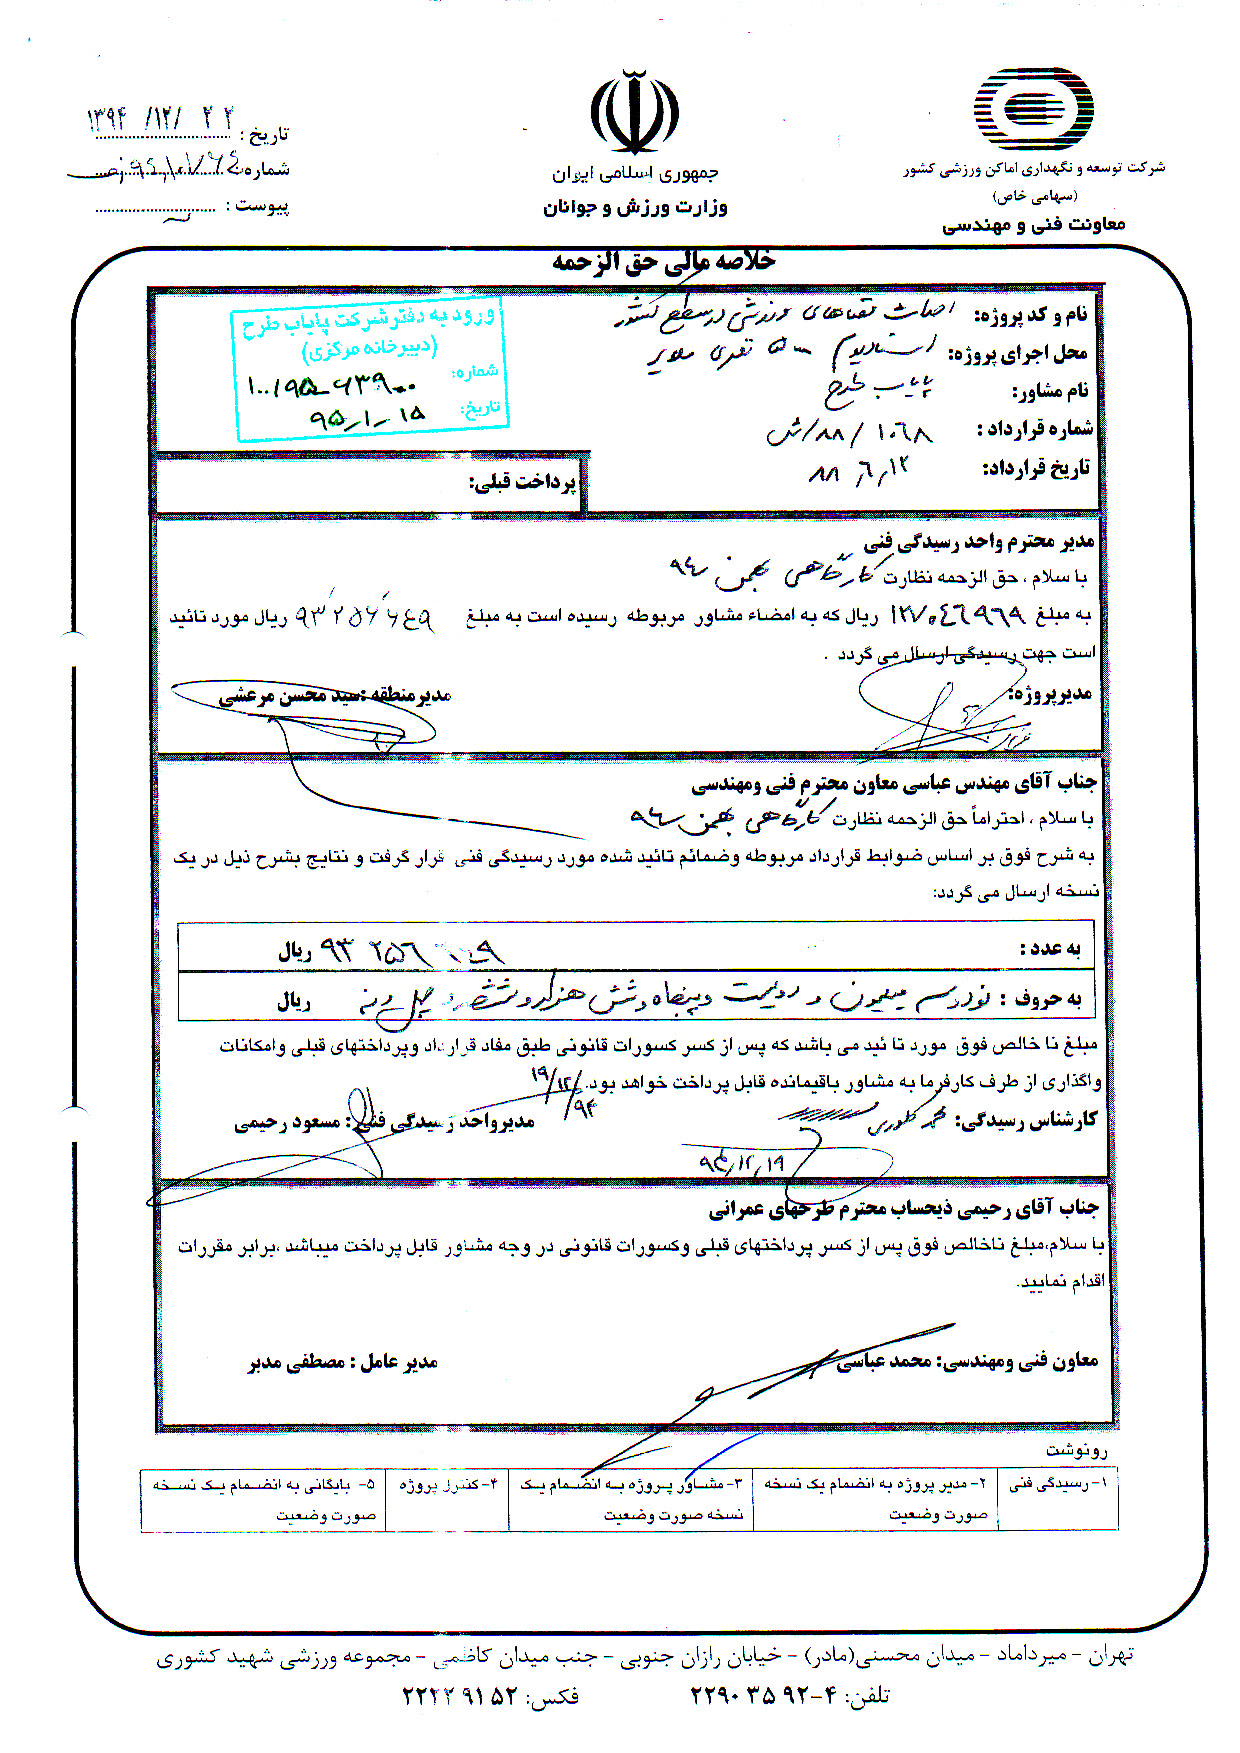 شرکت توسعه و نگهداری اماکن ورزشی کشور
(سهامی خاص)
معاونت فنی و مهندسی
جمهوری اسلامی ایران
وزارت ورزش و جوانان
تاریخ : ۱۳۹۴ /۱۲/ ۲۲
شماره:
پیوست :
خلاصه مالی حق الزحمه
نام و کد پروژه: احداث فضاهای ورزشی در سطح کشور
محل اجرای پروژه: استادیوم ۵۰۰۰ نفری ملایر
نام مشاور: پایاب طرح
شماره قرارداد : ۱۰۶۸ /۸۸/ش
تاریخ قرارداد: ۸۸/۶/۱۲
ورود به دفتر شرکت پایاب طرح
(دبیرخانه مرکزی)
شماره: ۱۰۰/۹۵-۶۳۹۰۰
تاریخ: ۹۵-۱-۱۵
پرداخت قبلی:
مدیر محترم واحد رسیدگی فنی
با سلام ، حق الزحمه نظارت کارگاهی بهمن ۹۴
به مبلغ ۱۲۷۰۴۶۹۶۹ ریال که به امضاء مشاور مربوطه رسیده است به مبلغ ۹۳۲۵۶۶۴۹ ریال مورد تائید
است جهت رسیدگی ارسال می گردد .
مدیرپروژه:
مدیرمنطقه :سید محسن مرعشی
جناب آقای مهندس عباسی معاون محترم فنی ومهندسی
با سلام ، احتراماً حق الزحمه نظارت کارگاهی بهمن ۹۴
به شرح فوق بر اساس ضوابط قرارداد مربوطه وضمائم تائید شده مورد رسیدگی فنی قرار گرفت و نتایج بشرح ذیل در یک
نسخه ارسال می گردد:
به عدد : ۹۳ ۲۵۶ ۶۴۹ ریال
به حروف : نود و سه میلیون و دویست و پنجاه و شش هزار و ششصد و چهل و نه ریال
مبلغ نا خالص فوق مورد تا ئید می باشد که پس از کسر کسورات قانونی طبق مفاد قرارداد وپرداختهای قبلی وامکانات
واگذاری از طرف کارفرما به مشاور باقیمانده قابل پرداخت خواهد بود.
۱۹/۱۲/۹۴
کارشناس رسیدگی:
مدیرواحد رسیدگی فنی : مسعود رحیمی
۹۴/۱۲/۱۹
جناب آقای رحیمی ذیحساب محترم طرحهای عمرانی
با سلام،مبلغ ناخالص فوق پس از کسر پرداختهای قبلی وکسورات قانونی در وجه مشاور قابل پرداخت میباشد ،برابر مقررات
اقدام نمایید.
معاون فنی ومهندسی: محمد عباسی
مدیر عامل : مصطفی مدبر
رونوشت
۱- رسیدگی فنی
۲- مدیر پروژه به انضمام یک نسخه
صورت وضعیت
۳- مشاور پروژه به انضمام یک
نسخه صورت وضعیت
۴- کنترل پروژه
۵- بایگانی به انضمام یک نسخه
صورت وضعیت
تهران - میرداماد - میدان محسنی(مادر) - خیابان رازان جنوبی - جنب میدان کاظمی - مجموعه ورزشی شهید کشوری
تلفن: ۴-۹۲ ۳۵ ۲۲۹۰ فکس: ۵۲ ۹۱ ۲۲۲۲